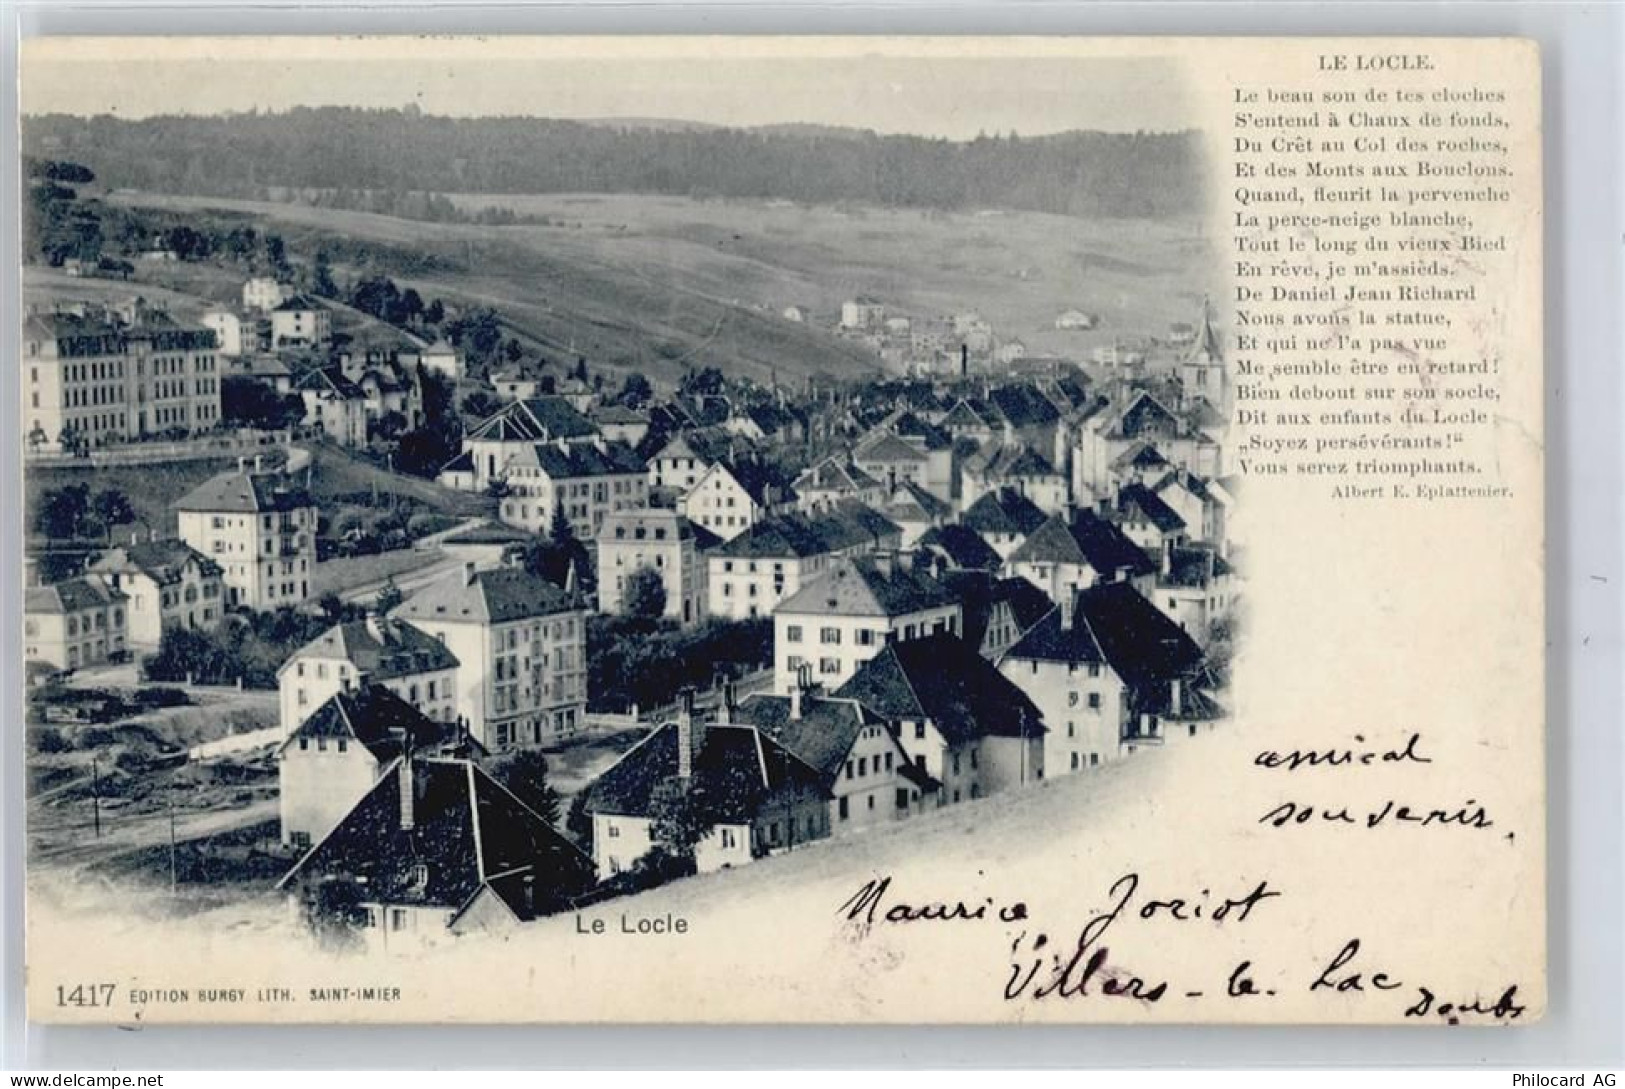 LE LOCLE.
Le beau son de tes cloches
S'entend à Chaux de fonds,
Du Crêt au Col des roches,
Et des Monts aux Bouclons.
Quand, fleurit la pervenche
La perce-neige blanche,
Tout le long du vieux Bied
En rêve, je m'assièds.
De Daniel Jean Richard
Nous avons la statue,
Et qui ne l'a pas vue
Me semble être en retard!
Bien debout sur son socle,
Dit aux enfants du Locle:
„Soyez persévérants!“
Vous serez triomphants.
Albert E. Eplattenier.
amical
souvenir.
Maurice Joriot
Villers-le-Lac
Doubs
Le Locle
1417 EDITION BURGY LITH. SAINT-IMIER
www.allcollection.net
Philocard AG